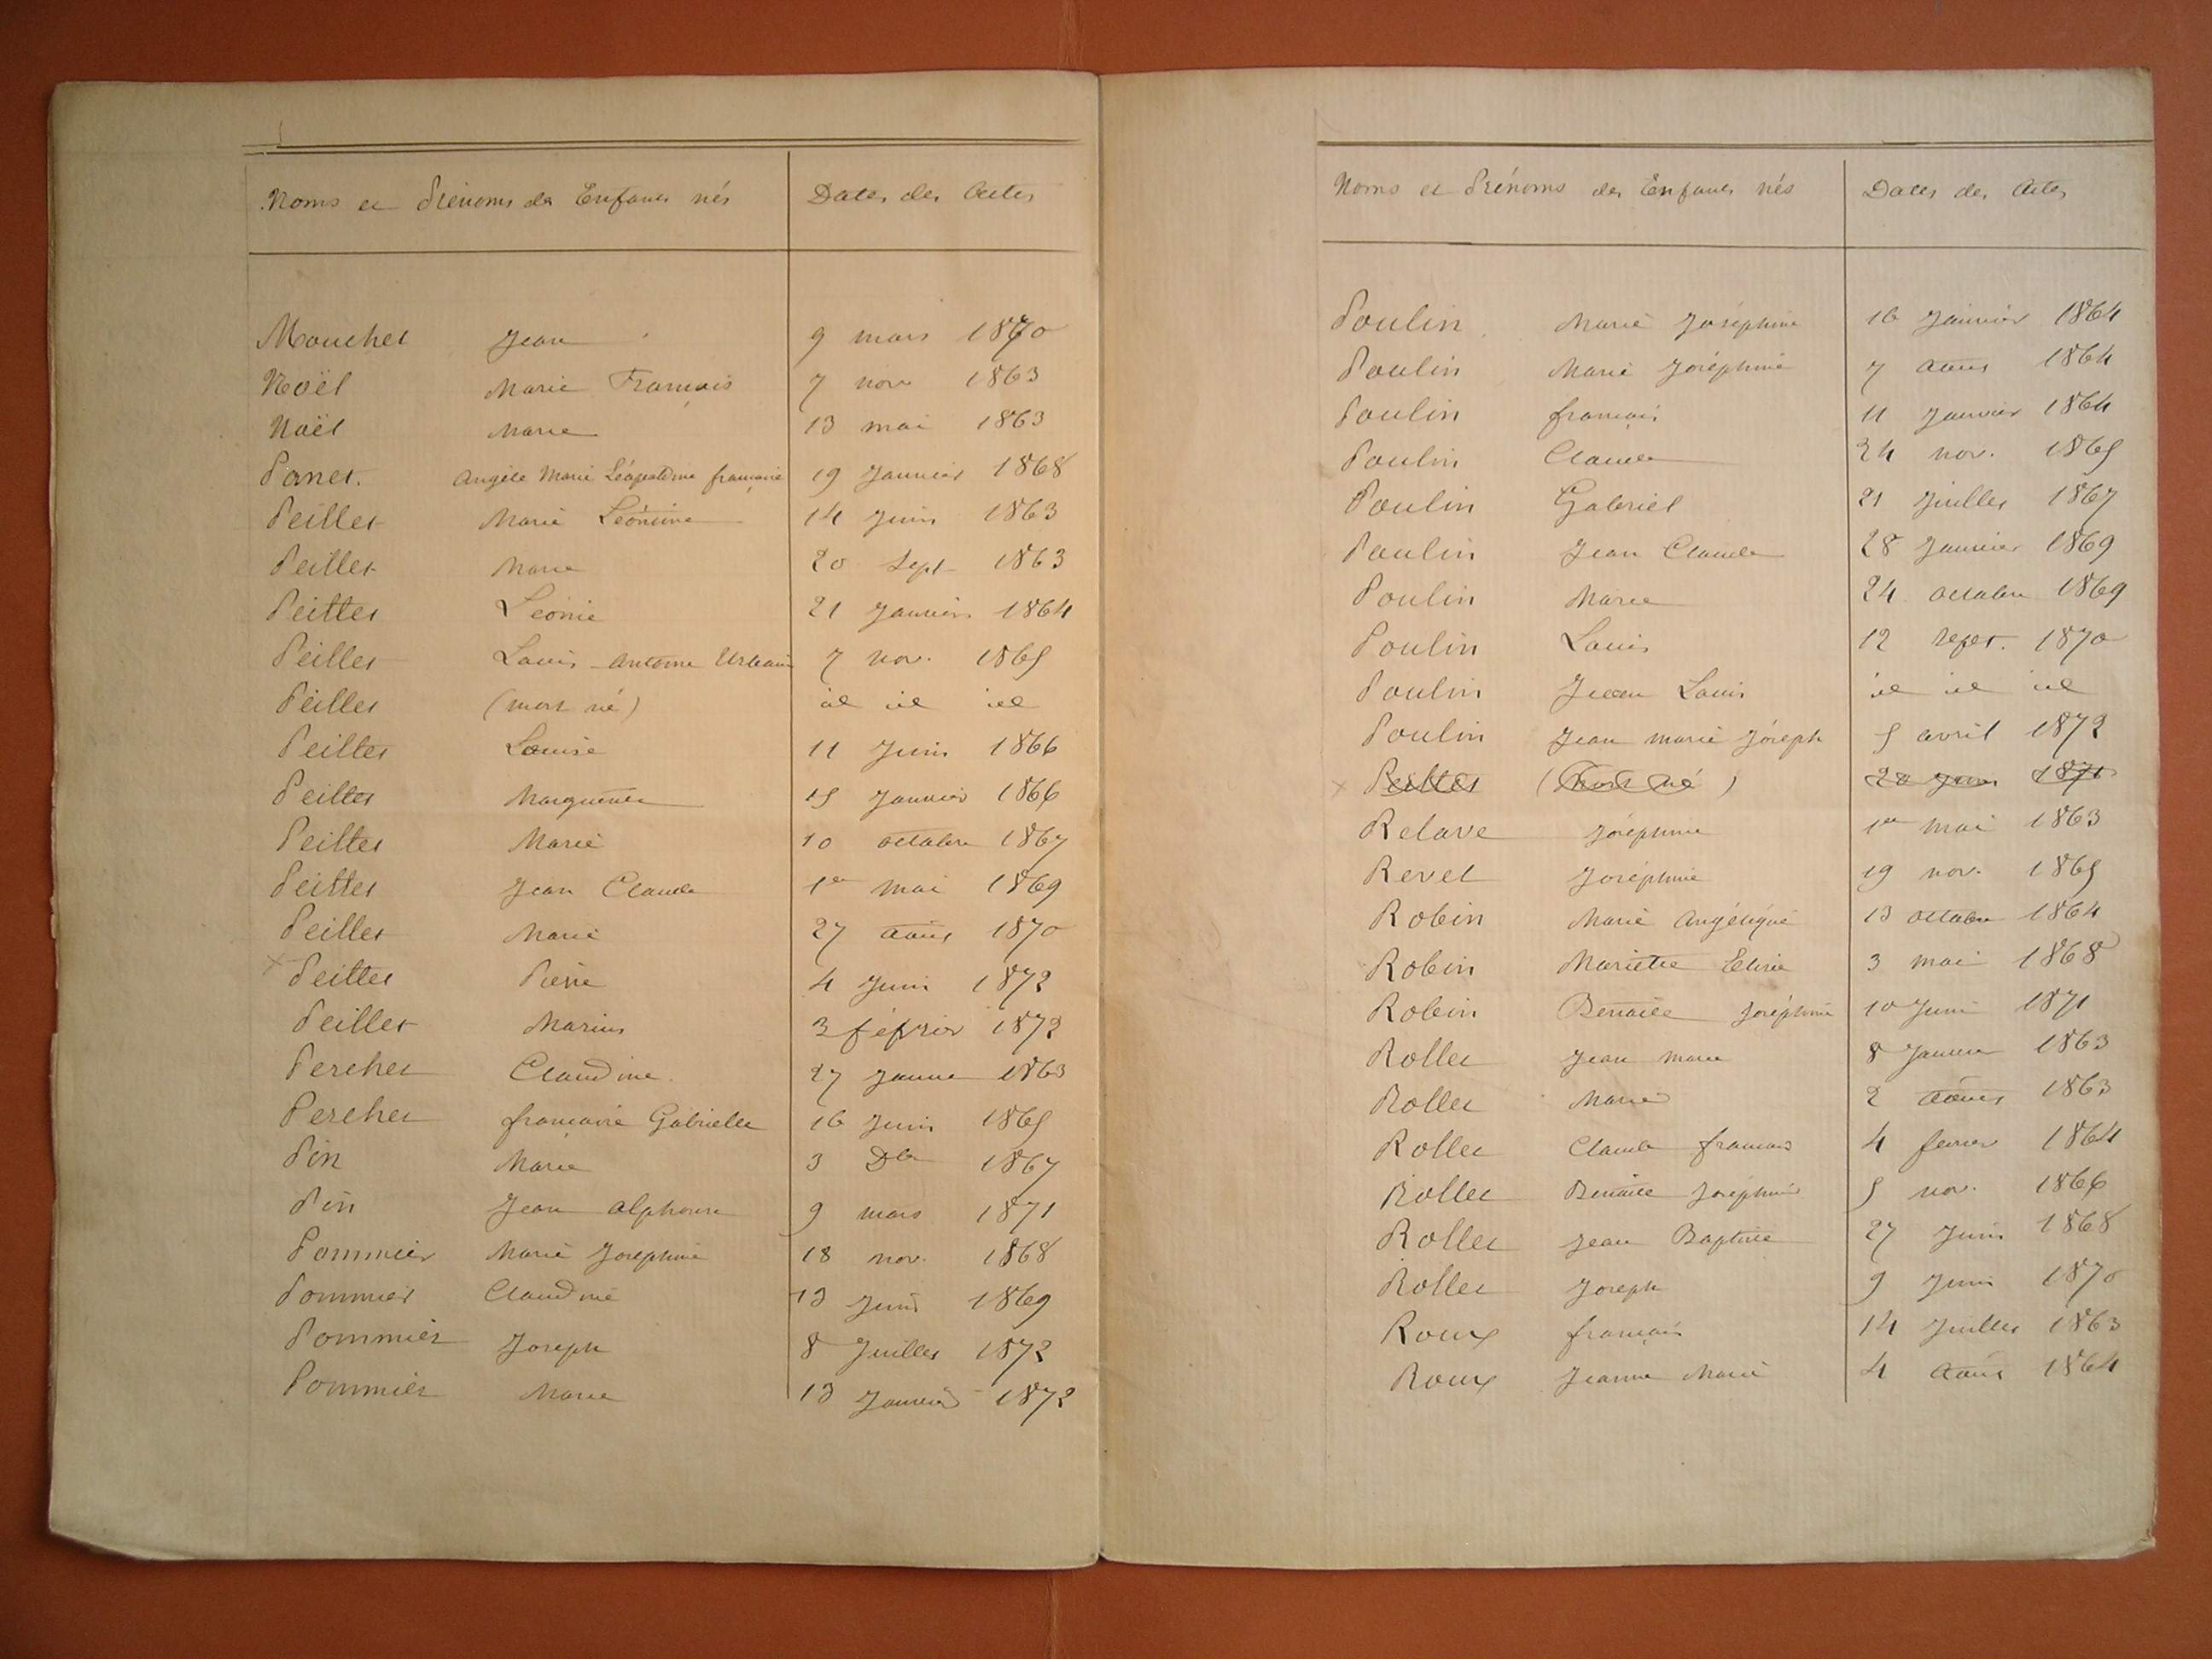 Noms et Prénoms des Enfants nés Dates des Actes
Mouchet Jean 9 mars 1870
Noël Marie François 7 nov 1863
Noël Marie 13 mai 1863
Panet. Angèle Marie Léopoldine françoise 19 Janvier 1868
Peillet Marie Léontine 14 Juin 1863
Peillet Marie 20 Sept 1863
Peillet Léonie 21 Janvier 1864
Peillet Louis Antoine Urbain 7 nov. 1865
Peillet (mort né) id id id
Peillet Louise 11 Juin 1866
Peillet Marguerite 15 Janvier 1866
Peillet Marie 10 octobre 1867
Peillet Jean Claude 1er mai 1869
Peillet Marie 27 août 1870
x Peillet Pierre 4 Juin 1872
Peillet Marius 3 février 1872
Percher Claudine 27 Janvier 1863
Percher françoise Gabrielle 16 Juin 1865
Pin Marie 3 Dbre 1867
Pin Jean Alphonse 9 mars 1871
Pommier Marie Joséphine 18 nov. 1868
Pommier Claudine 13 Juin 1869
Pommier Joseph 8 Juillet 1872
Pommier Marie 13 Janvier 1872
Noms et Prénoms des Enfants nés Dates des Actes
Poulin Marie Joséphine 16 Janvier 1864
Poulin Marie Joséphine 7 août 1864
Poulin françois 11 Janvier 1864
Poulin Claude 24 nov. 1865
Poulin Gabriel 21 Juillet 1867
Poulin Jean Claude 28 Janvier 1869
Poulin Marie 24 octobre 1869
Poulin Louis 12 1870
Poulin Jean Louis id id id
Poulin Jean marie Joseph 5 avril 1872
x Peillet (Mort né) 20 1871
Relave Joséphine 1er mai 1863
Revel Joséphine 19 nov. 1865
Robin Marie Angélique 13 octobre 1864
Robin Mariette Elisie 3 mai 1868
Robin Benoite Joséphine 10 Juin 1871
Rollet Jean marie 8 Janvier 1863
Rollet Marie 2 août 1863
Rollet Claude françois 4 février 1864
Rollet Benoite Joséphine 5 nov. 1866
Rollet Jean Baptiste 27 Juin 1868
Rollet Joseph 9 Juin 1870
Roux françois 14 Juillet 1863
Roux Jeanne Marie 4 août 1864